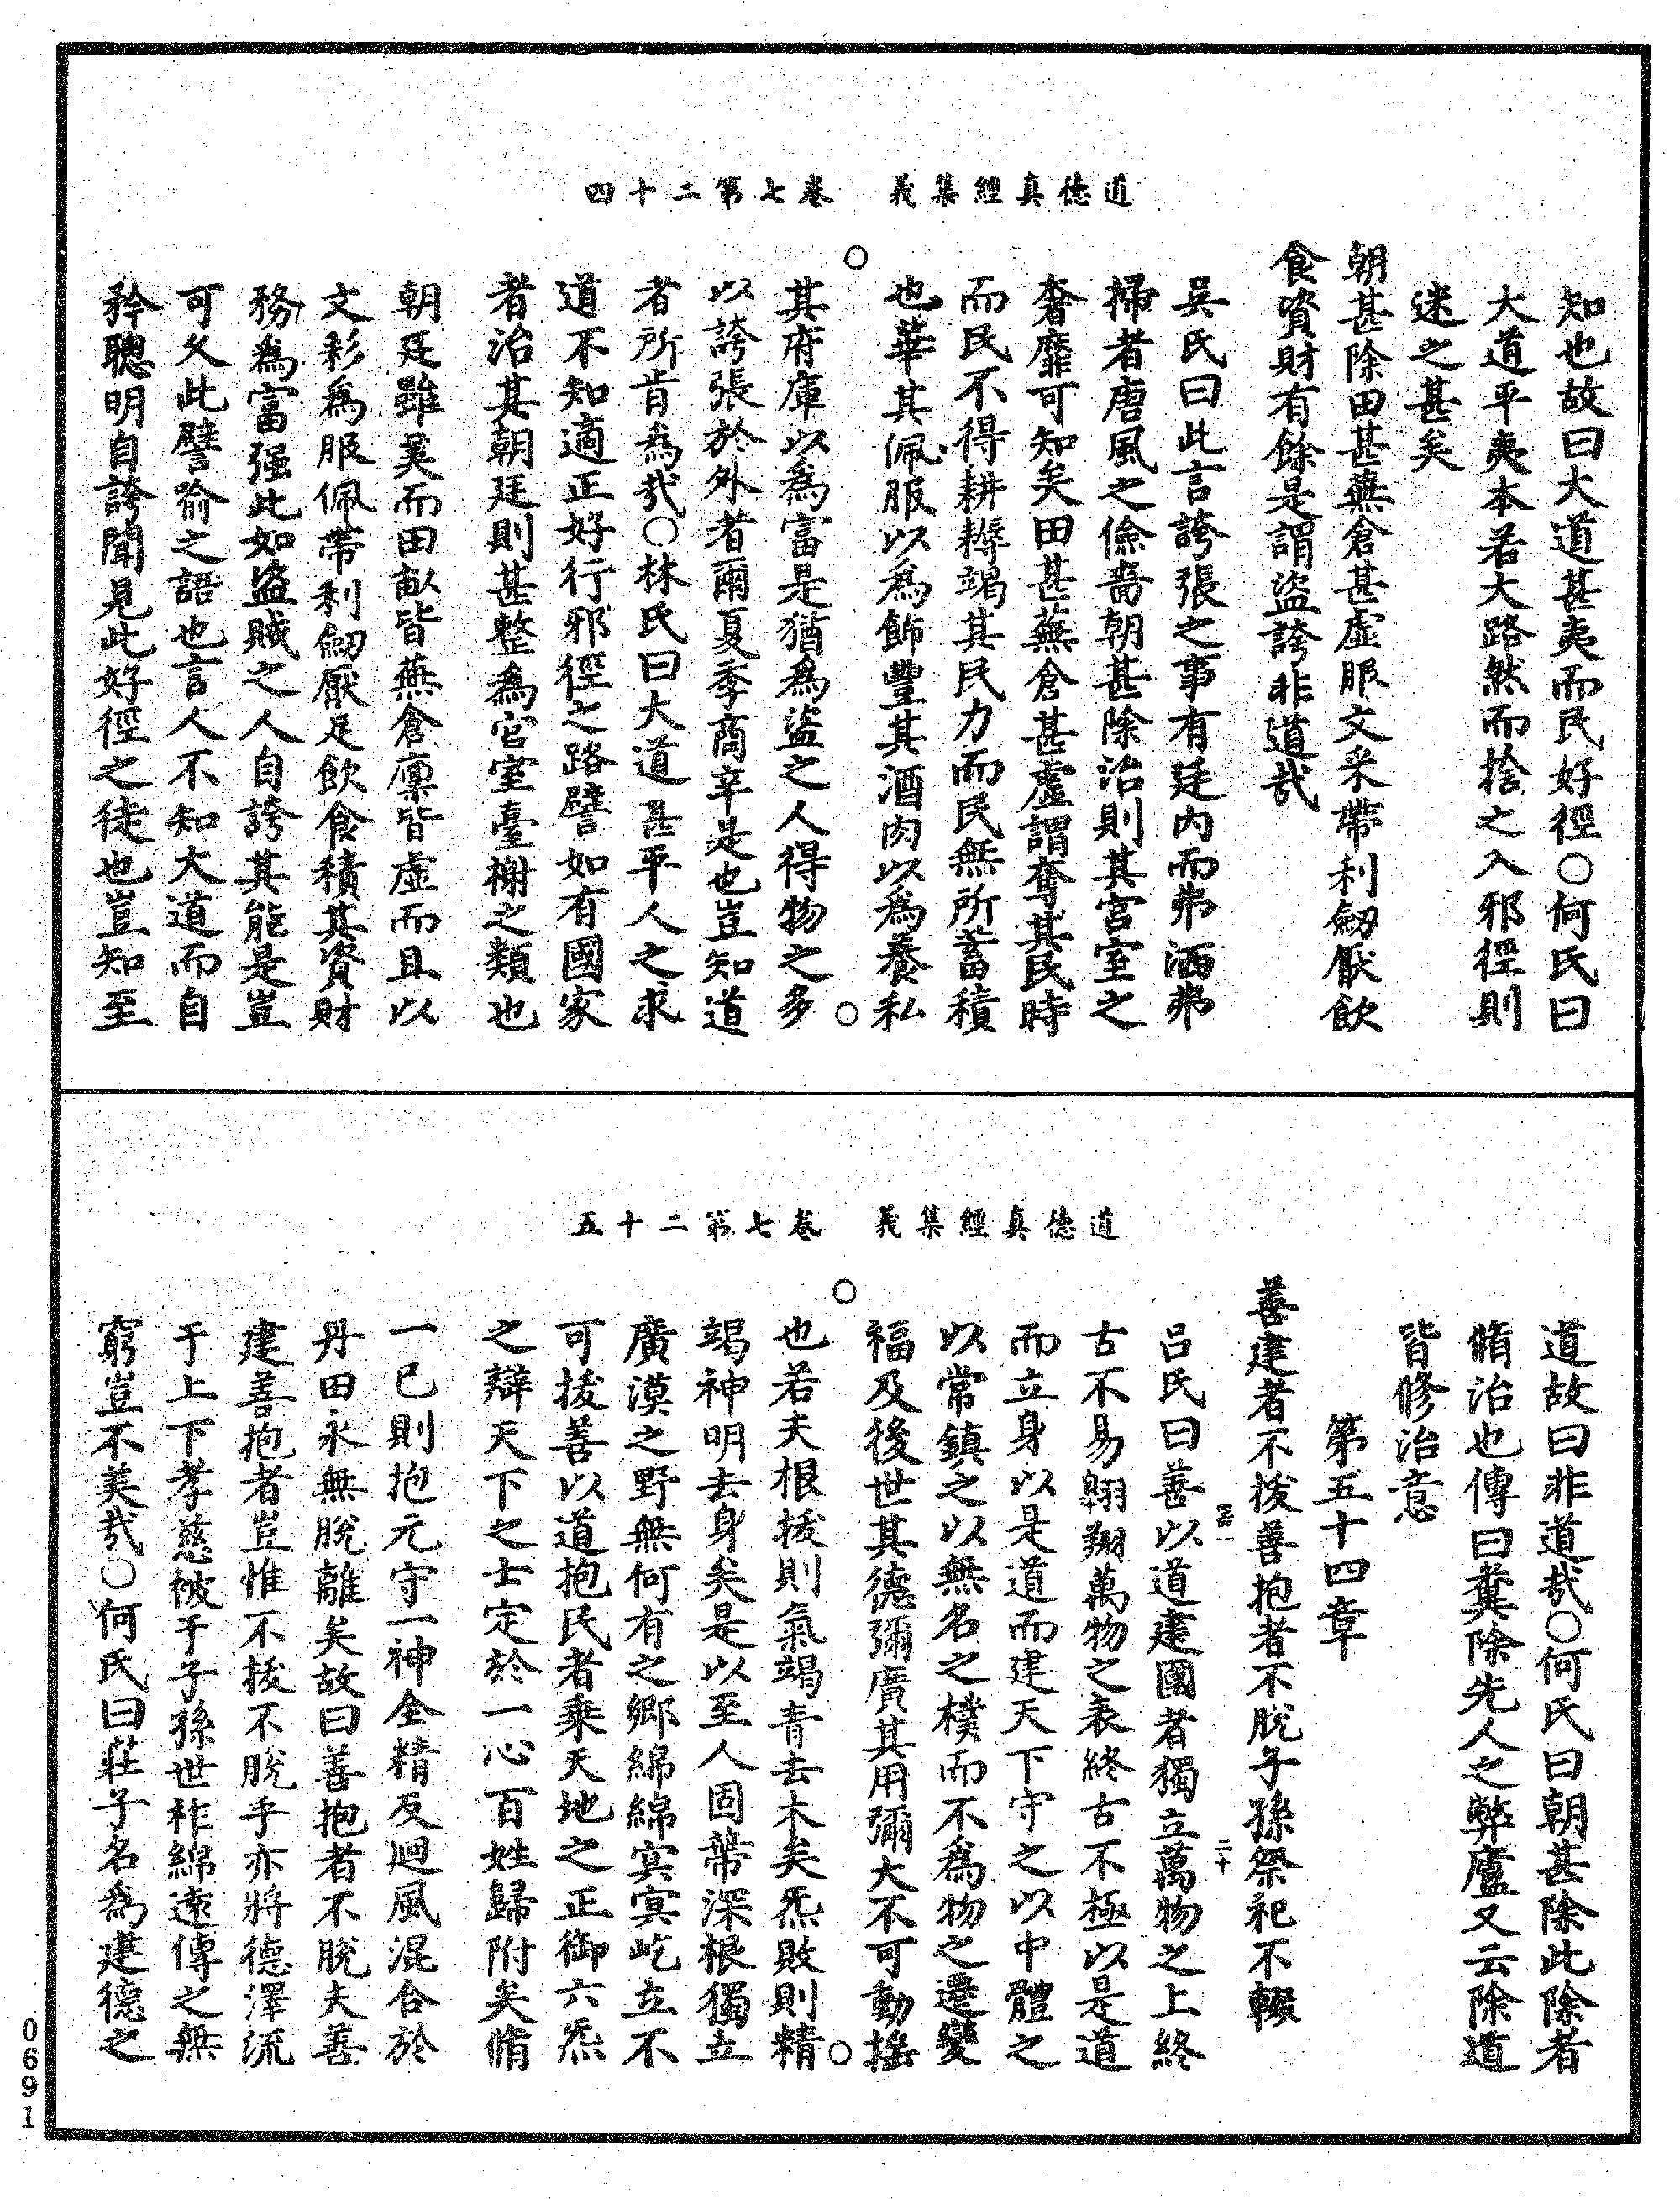 道德真經集義　卷七第二十四
知也故曰大道甚夷而民好徑○何氏曰
大道平夷本若大路然而捨之入邪徑則
迷之甚矣
朝甚除田甚蕪倉甚虛服文采帶利劒厭飲
食資財有餘是謂盜誇非道哉
吳氏曰此言誇張之事有廷內而弗洒弗
掃者唐風之儉嗇朝甚除治則其宮室之
奢靡可知矣田甚蕪倉甚虛謂奪其民時
而民不得耕耨竭其民力而民無所蓄積
也華其佩服以為飾豐其酒肉以為養私
其府庫以為富是猶為盜之人得物之多
以誇張於外者爾夏季商辛是也豈知道
者所肯為哉○林氏曰大道甚平人之求
道不知適正好行邪徑之路譬如有國家
者治其朝廷則甚整為宮室臺榭之類也
朝廷雖美而田畝皆蕪倉廩皆虛而且以
文彩為服佩帶利劒厭足飲食積其資財
務為富强此如盜賊之人自誇其能是豈
可久此譬喻之語也言人不知大道而自
矜聰明自誇聞見此好徑之徒也豈知至
道德真經集義　卷七第二十五
道故曰非道哉○何氏曰朝甚除此除者
脩治也傳曰糞除先人之弊廬又云除道
皆修治意
第五十四章
善建者不拔善抱者不脫子孫祭祀不輟
呂氏曰善以道建國者獨立萬物之上終
古不易翱翔萬物之表終古不極以是道
而立身以是道而建天下守之以中體之
以常鎮之以無名之樸而不為物之遷變
福及後世其德彌廣其用彌大不可動搖
也若夫根拔則氣竭青去木矣炁敗則精
竭神明去身矣是以至人固蔕深根獨立
廣漠之野無何有之鄉綿綿冥冥屹立不
可拔善以道抱民者乘天地之正御六炁
之辯天下之士定於一心百姓歸附矣脩
一已則抱元守一神全精反迴風混合於
丹田永無脫離矣故曰善抱者不脫夫善
建善抱者豈惟不拔不脫乎亦將德澤流
于上下孝慈被于子孫世祚綿遠傳之無
窮豈不美哉○何氏曰莊子名為建德之
0691